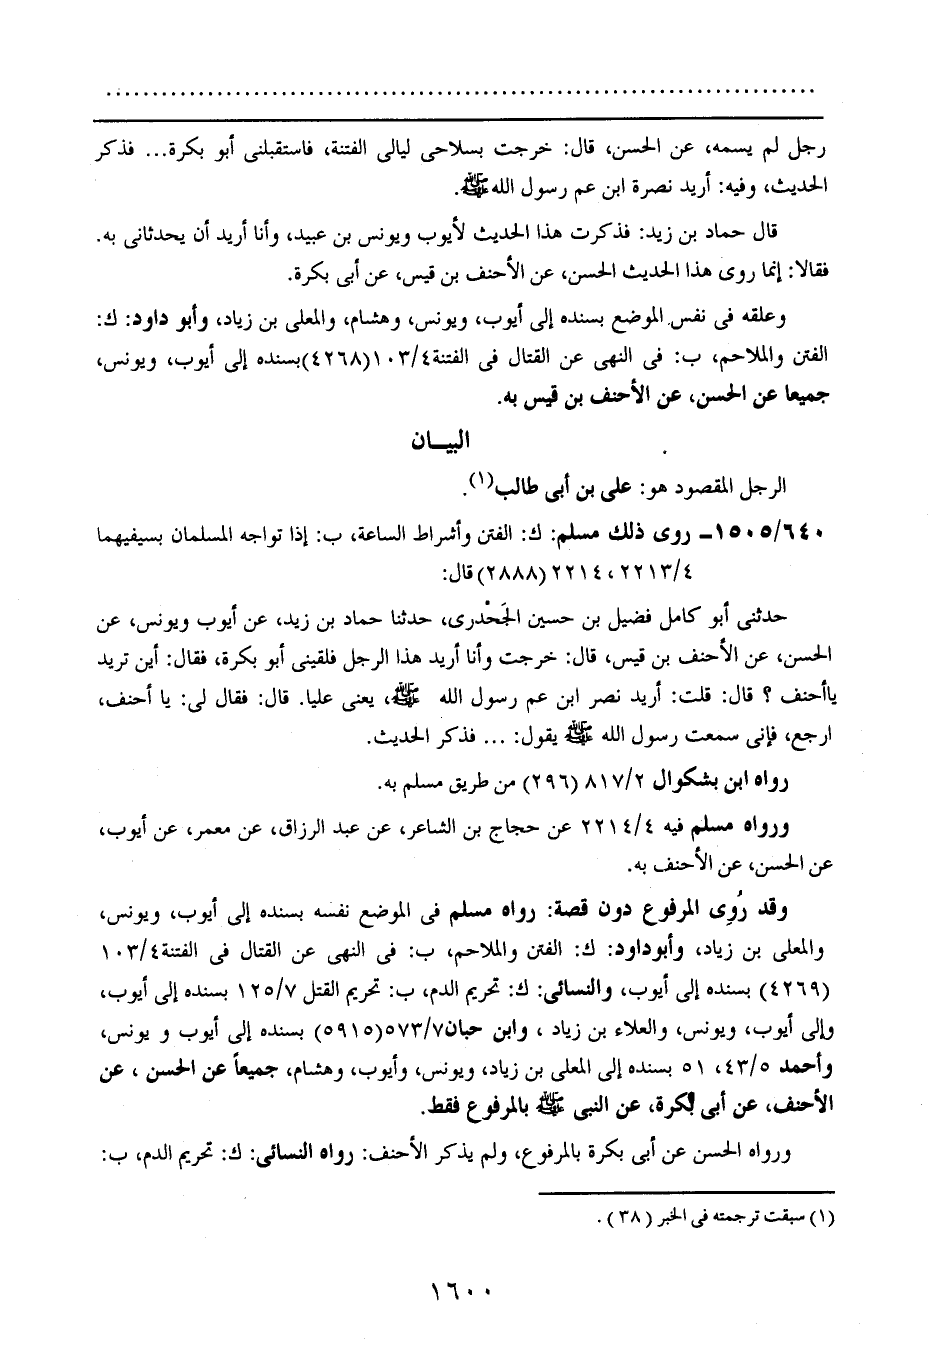 رجل لم يسمه، عن الحسن، قال: خرجت بسلاحى ليالى الفتنة، فاستقبلنى أبو بكرة... فذكر
الحديث، وفيه: أريد نصرة ابن عم رسول الله ﷺ.
قال حماد بن زيد: فذكرت هذا الحديث لأيوب ويونس بن عبيد، وأنا أريد أن يحدثانى به.
فقالا: إنما روى هذا الحديث الحسن، عن الأحنف بن قيس، عن أبى بكرة.
وعلقه فى نفس الموضع بسنده إلى أيوب، ويونس، وهشام، والمعلى بن زياد، وأبو داود: ك:
الفتن والملاحم، ب: فى النهى عن القتال فى الفتنة ١٠٣/٤ (٤٢٦٨) بسنده إلى أيوب، ويونس،
جميعا عن الحسن، عن الأحنف بن قيس به.
البيــان
الرجل المقصود هو: على بن أبى طالب(١).
١٥٠٥/٦٤٠ــ روى ذلك مسلم: ك: الفتن وأشراط الساعة، ب: إذا تواجه المسلمان بسيفيهما
٢٢١٣/٤، ٢٢١٤ (٢٨٨٨) قال:
حدثنى أبو كامل فضيل بن حسين الجَحْدرى، حدثنا حماد بن زيد، عن أيوب ويونس، عن
الحسن، عن الأحنف بن قيس، قال: خرجت وأنا أريد هذا الرجل فلقينى أبو بكرة، فقال: أين تريد
ياأحنف ؟ قال: قلت: أريد نصر ابن عم رسول الله ﷺ، يعنى عليا. قال: فقال لى: يا أحنف،
ارجع، فإنى سمعت رسول الله ﷺ يقول: ... فذكر الحديث.
رواه ابن بشكوال ٨١٧/٢ (٢٩٦) من طريق مسلم به.
ورواه مسلم فيه ٢٢١٤/٤ عن حجاج بن الشاعر، عن عبد الرزاق، عن معمر، عن أيوب،
عن الحسن، عن الأحنف به.
وقد رُوِى المرفوع دون قصة: رواه مسلم فى الموضع نفسه بسنده إلى أيوب، ويونس،
والمعلى بن زياد، وأبوداود: ك: الفتن والملاحم، ب: فى النهى عن القتال فى الفتنة ١٠٣/٤
(٤٢٦٩) بسنده إلى أيوب، والنسائى: ك: تحريم الدم، ب: تحريم القتل ١٢٥/٧ بسنده إلى أيوب،
وإلى أيوب، ويونس، والعلاء بن زياد ، وابن حبان ٥٧٣/٧ (٥٩١٥) بسنده إلى أيوب و يونس،
وأحمد ٤٣/٥، ٥١ بسنده إلى المعلى بن زياد، ويونس، وأيوب، وهشام، جميعاً عن الحسن ، عن
الأحنف، عن أبى بكرة، عن النبى ﷺ بالمرفوع فقط.
ورواه الحسن عن أبى بكرة بالمرفوع، ولم يذكر الأحنف: رواه النسائى: ك: تحريم الدم، ب:
(١) سبقت ترجمته فى الخبر (٣٨) .
١٦٠٠